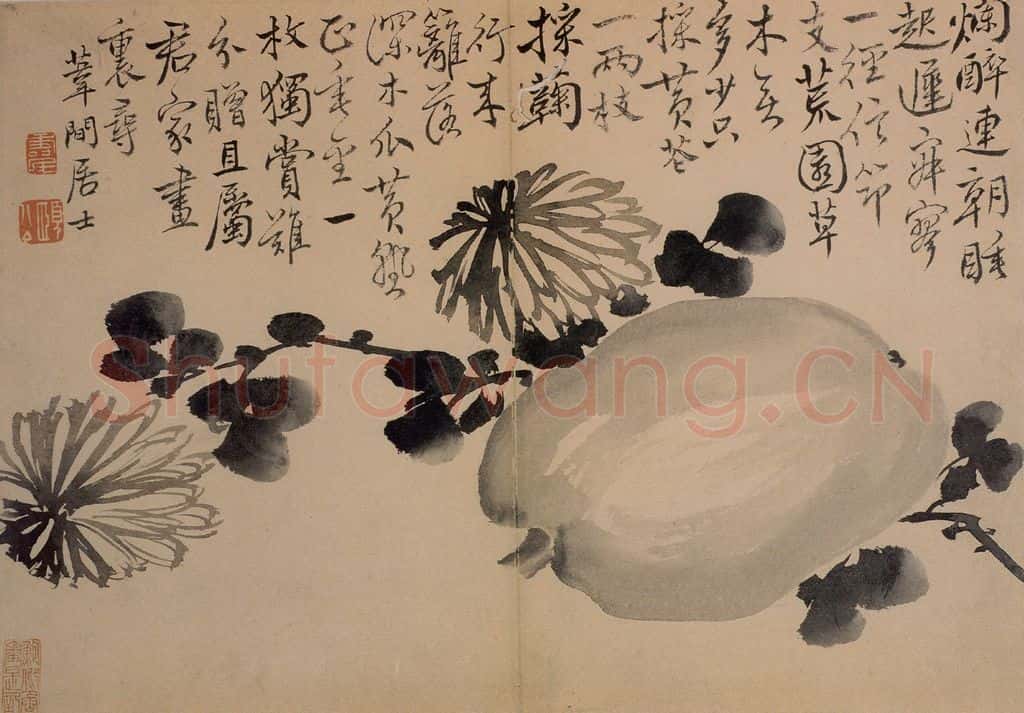 爛醉連朝睡
起遲寂寥
一徑信筇
支荒園草
木無
多少只
採黃花
一兩枝
採蘜
行來
籬落
深木瓜黃綻
正垂金一
枚獨賞難
分贈且屬
君家畫
裏尋
葦間居士
壽民
頤公
Shufawang.CN